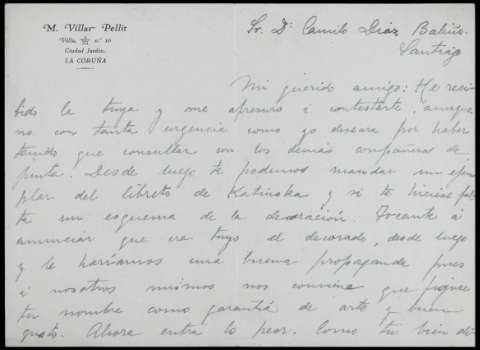 M. Villar Pellit
Villa, nº 10
Ciudad Jardín.
LA CORUÑA
Sr. Dn Camilo Diaz Baliño.
Santiago
Mi querido amigo: He reci
bido la tuya y me apresuro a contestarte, aunque
no con tanta urgencia como yo deseara por haber
tenido que consultar con los demás compañeros de
junta. Desde luego te podemos mandar un ejem
plar del libreto de Katiuska y si te hiciese fal
ta un esquema de la decoración. Tocante á
anunciar que era tuyo el decorado, desde luego
y te hariamos una buena propaganda pues
á nosotros mismos nos conviene que figure
tu nombre como garantiá de arte y buen
gusto. Ahora entra lo peor. Como tu bien de